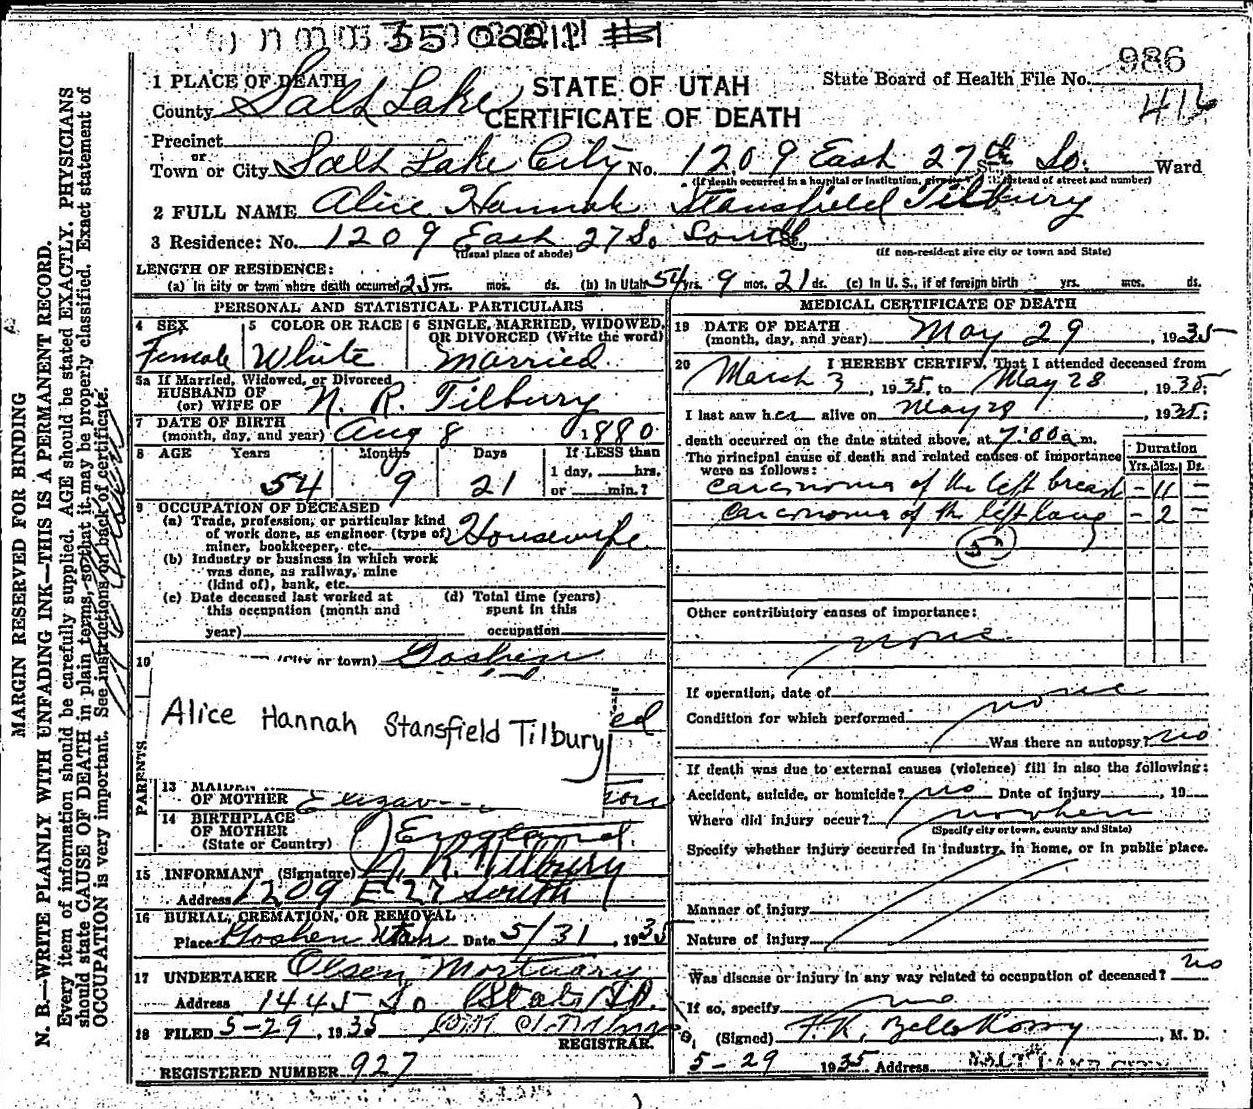 35022111
986
1 PLACE OF DEATH
STATE OF UTAH
State Board of Health File No.
County Salt Lake
CERTIFICATE OF DEATH
416
Precinct
or
Town or City Salt Lake City No. 1209 East 27th So. St., Ward
(If death occurred in a hospital or institution, give its instead of street and number)
2 FULL NAME Alice Hannah Stansfield Tilbury
3 Residence: No. 1209 East 27 So South St.
(Usual place of abode) (If non-resident give city or town and State)
LENGTH OF RESIDENCE:
(a) In city or town where death occurred 25 yrs. mos. ds. (b) In Utah 54 yrs. 9 mos. 21 ds. (c) In U. S., if of foreign birth yrs. mos. ds.
PERSONAL AND STATISTICAL PARTICULARS
4 SEX 5 COLOR OR RACE 6 SINGLE, MARRIED, WIDOWED, OR DIVORCED (Write the word)
Female White Married
5a If Married, Widowed, or Divorced
HUSBAND OF
(or) WIFE OF N. R. Tilbury
7 DATE OF BIRTH
(month, day, and year) Aug 8 1880
8 AGE Years Months Days If LESS than
1 day, hrs.
54 9 21 or min.?
9 OCCUPATION OF DECEASED
(a) Trade, profession, or particular kind
of work done, as engineer (type of) Housewife
miner, bookkeeper, etc.
(b) Industry or business in which work
was done, as railway, mine
(kind of), bank, etc.
(c) Date deceased last worked at (d) Total time (years)
this occupation (month and spent in this
year) occupation
10 (City or town) Goshen
Alice Hannah Stansfield Tilbury
PARENTS
13 MAIDEN
OF MOTHER
14 BIRTHPLACE
OF MOTHER
(State or Country) England
15 INFORMANT (Signature) N. R. Tilbury
Address 1209 E 27 South
16 BURIAL, CREMATION, OR REMOVAL
Place Goshen Utah Date 5/31, 1935
17 UNDERTAKER Olsen Mortuary
Address 1445 So State St.
18 FILED 5-29, 1935
REGISTRAR.
REGISTERED NUMBER 927
MEDICAL CERTIFICATE OF DEATH
19 DATE OF DEATH
(month, day, and year) May 29, 1935
20 I HEREBY CERTIFY, That I attended deceased from
March 3, 1935, to May 28, 1935;
I last saw her alive on May 28, 1935;
death occurred on the date stated above, at 7:00 a.m.
The principal cause of death and related causes of importance
were as follows:
Duration
Yrs. Mos. Ds.
Carcinoma of the left breast - 11 -
Carcinoma of the left lung - 2 -
Other contributory causes of importance:
none
If operation, date of none
Condition for which performed
Was there an autopsy? no
If death was due to external causes (violence) fill in also the following:
Accident, suicide, or homicide? no Date of injury, 19
Where did injury occur? nowhere
(Specify city or town, county and State)
Specify whether injury occurred in industry, in home, or in public place.
Manner of injury
Nature of injury
Was disease or injury in any way related to occupation of deceased? no
If so, specify no
(Signed) M. D.
5-29 1935 Address SALT LAKE CITY
MARGIN RESERVED FOR BINDING
N. B.—WRITE PLAINLY WITH UNFADING INK—THIS IS A PERMANENT RECORD.
Every item of information should be carefully supplied. AGE should be stated EXACTLY. PHYSICIANS
should state CAUSE OF DEATH in plain terms, so that it may be properly classified. Exact statement of
OCCUPATION is very important. See instructions on back of certificate.